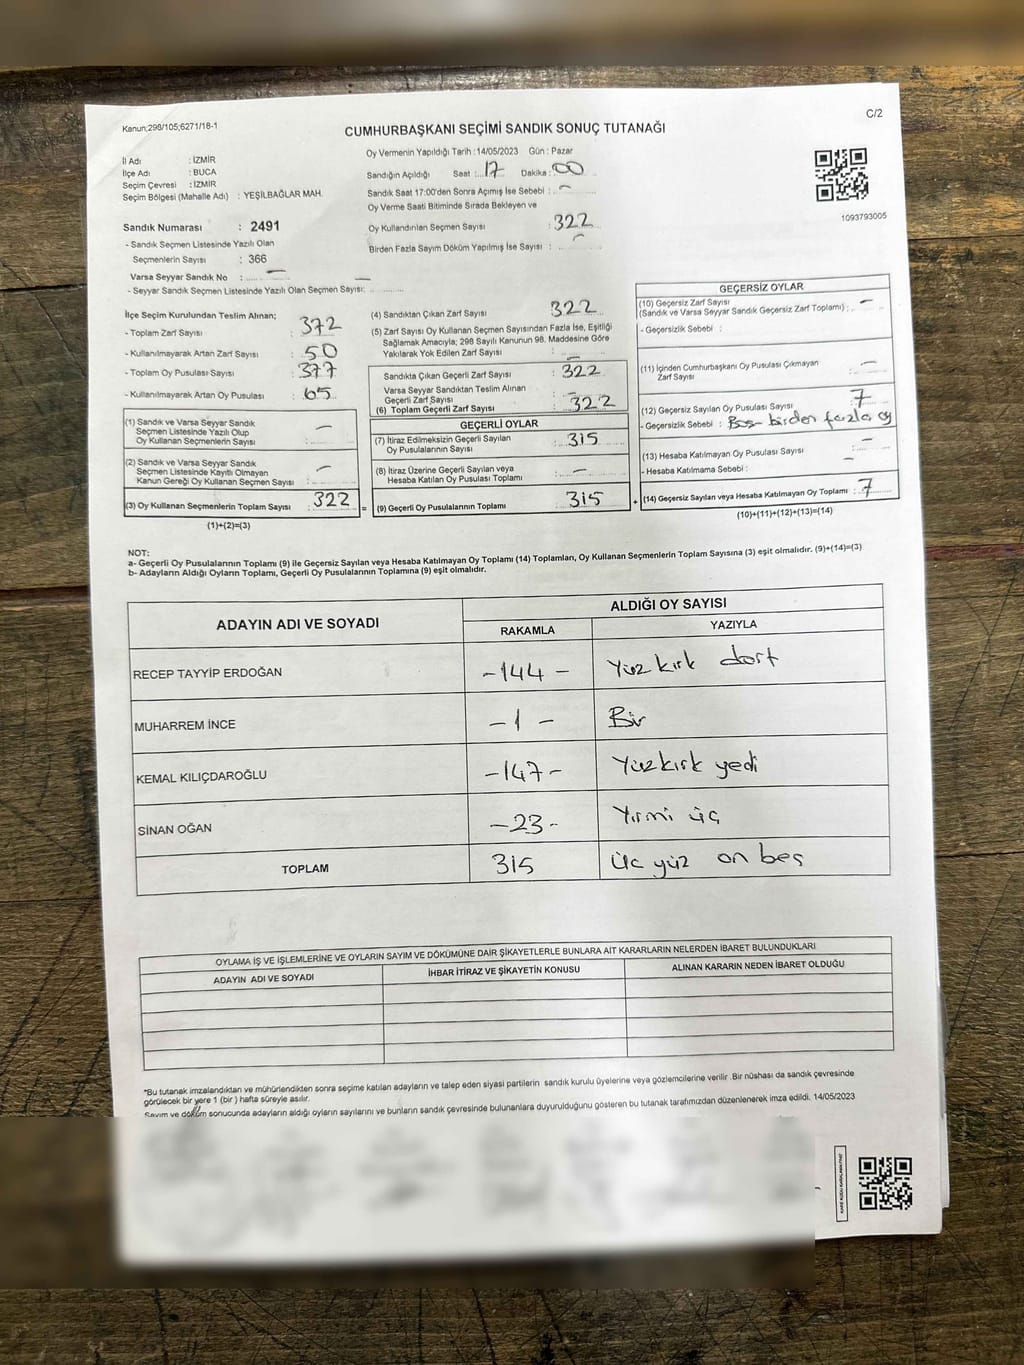 Kanun;298/105;6271/18-1
C/2
CUMHURBAŞKANI SEÇİMİ SANDIK SONUÇ TUTANAĞI
İl Adı : İZMİR
İlçe Adı : BUCA
Seçim Çevresi : İZMİR
Seçim Bölgesi (Mahalle Adı) : YEŞİLBAĞLAR MAH.
Oy Vermenin Yapıldığı Tarih :14/05/2023 Gün : Pazar
Sandığın Açıldığı Saat :..17 Dakika :00
Sandık Saat 17:00'den Sonra Açımış İse Sebebi : –
Oy Verme Saati Bitiminde Sırada Bekleyen ve
Oy Kullandırılan Seçmen Sayısı : 322
Birden Fazla Sayım Döküm Yapılmış İse Sayısı : –
1093793005
Sandık Numarası : 2491
- Sandık Seçmen Listesinde Yazılı Olan
Seçmenlerin Sayısı : 366
Varsa Seyyar Sandık No : –
- Seyyar Sandık Seçmen Listesinde Yazılı Olan Seçmen Sayısı: –
İlçe Seçim Kurulundan Teslim Alınan;
- Toplam Zarf Sayısı : 372
- Kullanılmayarak Artan Zarf Sayısı : 50
- Toplam Oy Pusulası Sayısı : 377
- Kullanılmayarak Artan Oy Pusulası : 65
(1) Sandık ve Varsa Seyyar Sandık
Seçmen Listesinde Yazılı Olup
Oy Kullanan Seçmenlerin Sayısı : –
(2) Sandık ve Varsa Seyyar Sandık
Seçmen Listesinde Kayıtlı Olmayan
Kanun Gereği Oy Kullanan Seçmen Sayısı : –
(3) Oy Kullanan Seçmenlerin Toplam Sayısı : 322
(1)+(2)=(3)
(4) Sandıktan Çıkan Zarf Sayısı : 322
(5) Zarf Sayısı Oy Kullanan Seçmen Sayısından Fazla İse, Eşitliği
Sağlamak Amacıyla; 298 Sayılı Kanunun 98. Maddesine Göre
Yakılarak Yok Edilen Zarf Sayısı : –
Sandıkta Çıkan Geçerli Zarf Sayısı : 322
Varsa Seyyar Sandıktan Teslim Alınan
Geçerli Zarf Sayısı : –
(6) Toplam Geçerli Zarf Sayısı : 322
GEÇERLİ OYLAR
(7) İtiraz Edilmeksizin Geçerli Sayılan
Oy Pusulalarının Sayısı : 315
(8) İtiraz Üzerine Geçerli Sayılan veya
Hesaba Katılan Oy Pusulası Toplamı : –
= (9) Geçerli Oy Pusulalarının Toplamı : 315
GEÇERSİZ OYLAR
(10) Geçersiz Zarf Sayısı
(Sandık ve Varsa Seyyar Sandık Geçersiz Zarf Toplamı) : –
- Geçersizlik Sebebi :
(11) İçinden Cumhurbaşkanı Oy Pusulası Çıkmayan
Zarf Sayısı : –
(12) Geçersiz Sayılan Oy Pusulası Sayısı : 7
- Geçersizlik Sebebi : Boş- birden fazla oy
(13) Hesaba Katılmayan Oy Pusulası Sayısı : –
- Hesaba Katılmama Sebebi : –
+ (14) Geçersiz Sayılan veya Hesaba Katılmayan Oy Toplamı : 7
(10)+(11)+(12)+(13)=(14)
NOT:
a- Geçerli Oy Pusulalarının Toplamı (9) ile Geçersiz Sayılan veya Hesaba Katılmayan Oy Toplamı (14) Toplamları, Oy Kullanan Seçmenlerin Toplam Sayısına (3) eşit olmalıdır. (9)+(14)=(3)
b- Adayların Aldığı Oyların Toplamı, Geçerli Oy Pusulalarının Toplamına (9) eşit olmalıdır.
ADAYIN ADI VE SOYADI
ALDIĞI OY SAYISI
RAKAMLA YAZIYLA
RECEP TAYYİP ERDOĞAN -144- Yüz kırk dört
MUHARREM İNCE -1- Bir
KEMAL KILIÇDAROĞLU -147- Yüzkırk yedi
SİNAN OĞAN -23- Yirmi üç
TOPLAM 315 üç yüz on beş
OYLAMA İŞ VE İŞLEMLERİNE VE OYLARIN SAYIM VE DÖKÜMÜNE DAİR ŞİKAYETLERLE BUNLARA AİT KARARLARIN NELERDEN İBARET BULUNDUKLARI
ADAYIN ADI VE SOYADI
İHBAR İTİRAZ VE ŞİKAYETİN KONUSU
ALINAN KARARIN NEDEN İBARET OLDUĞU
*Bu tutanak imzalandıktan ve mühürlendikten sonra seçime katılan adayların ve talep eden siyasi partilerin sandık kurulu üyelerine veya gözlemcilerine verilir .Bir nüshası da sandık çevresinde
görülecek bir yere 1 (bir ) hafta süreyle asılır.
Sayım ve döküm sonucunda adayların aldığı oyların sayılarını ve bunların sandık çevresinde bulunanlara duyurulduğunu gösteren bu tutanak tarafımızdan düzenlenerek imza edildi. 14/05/2023